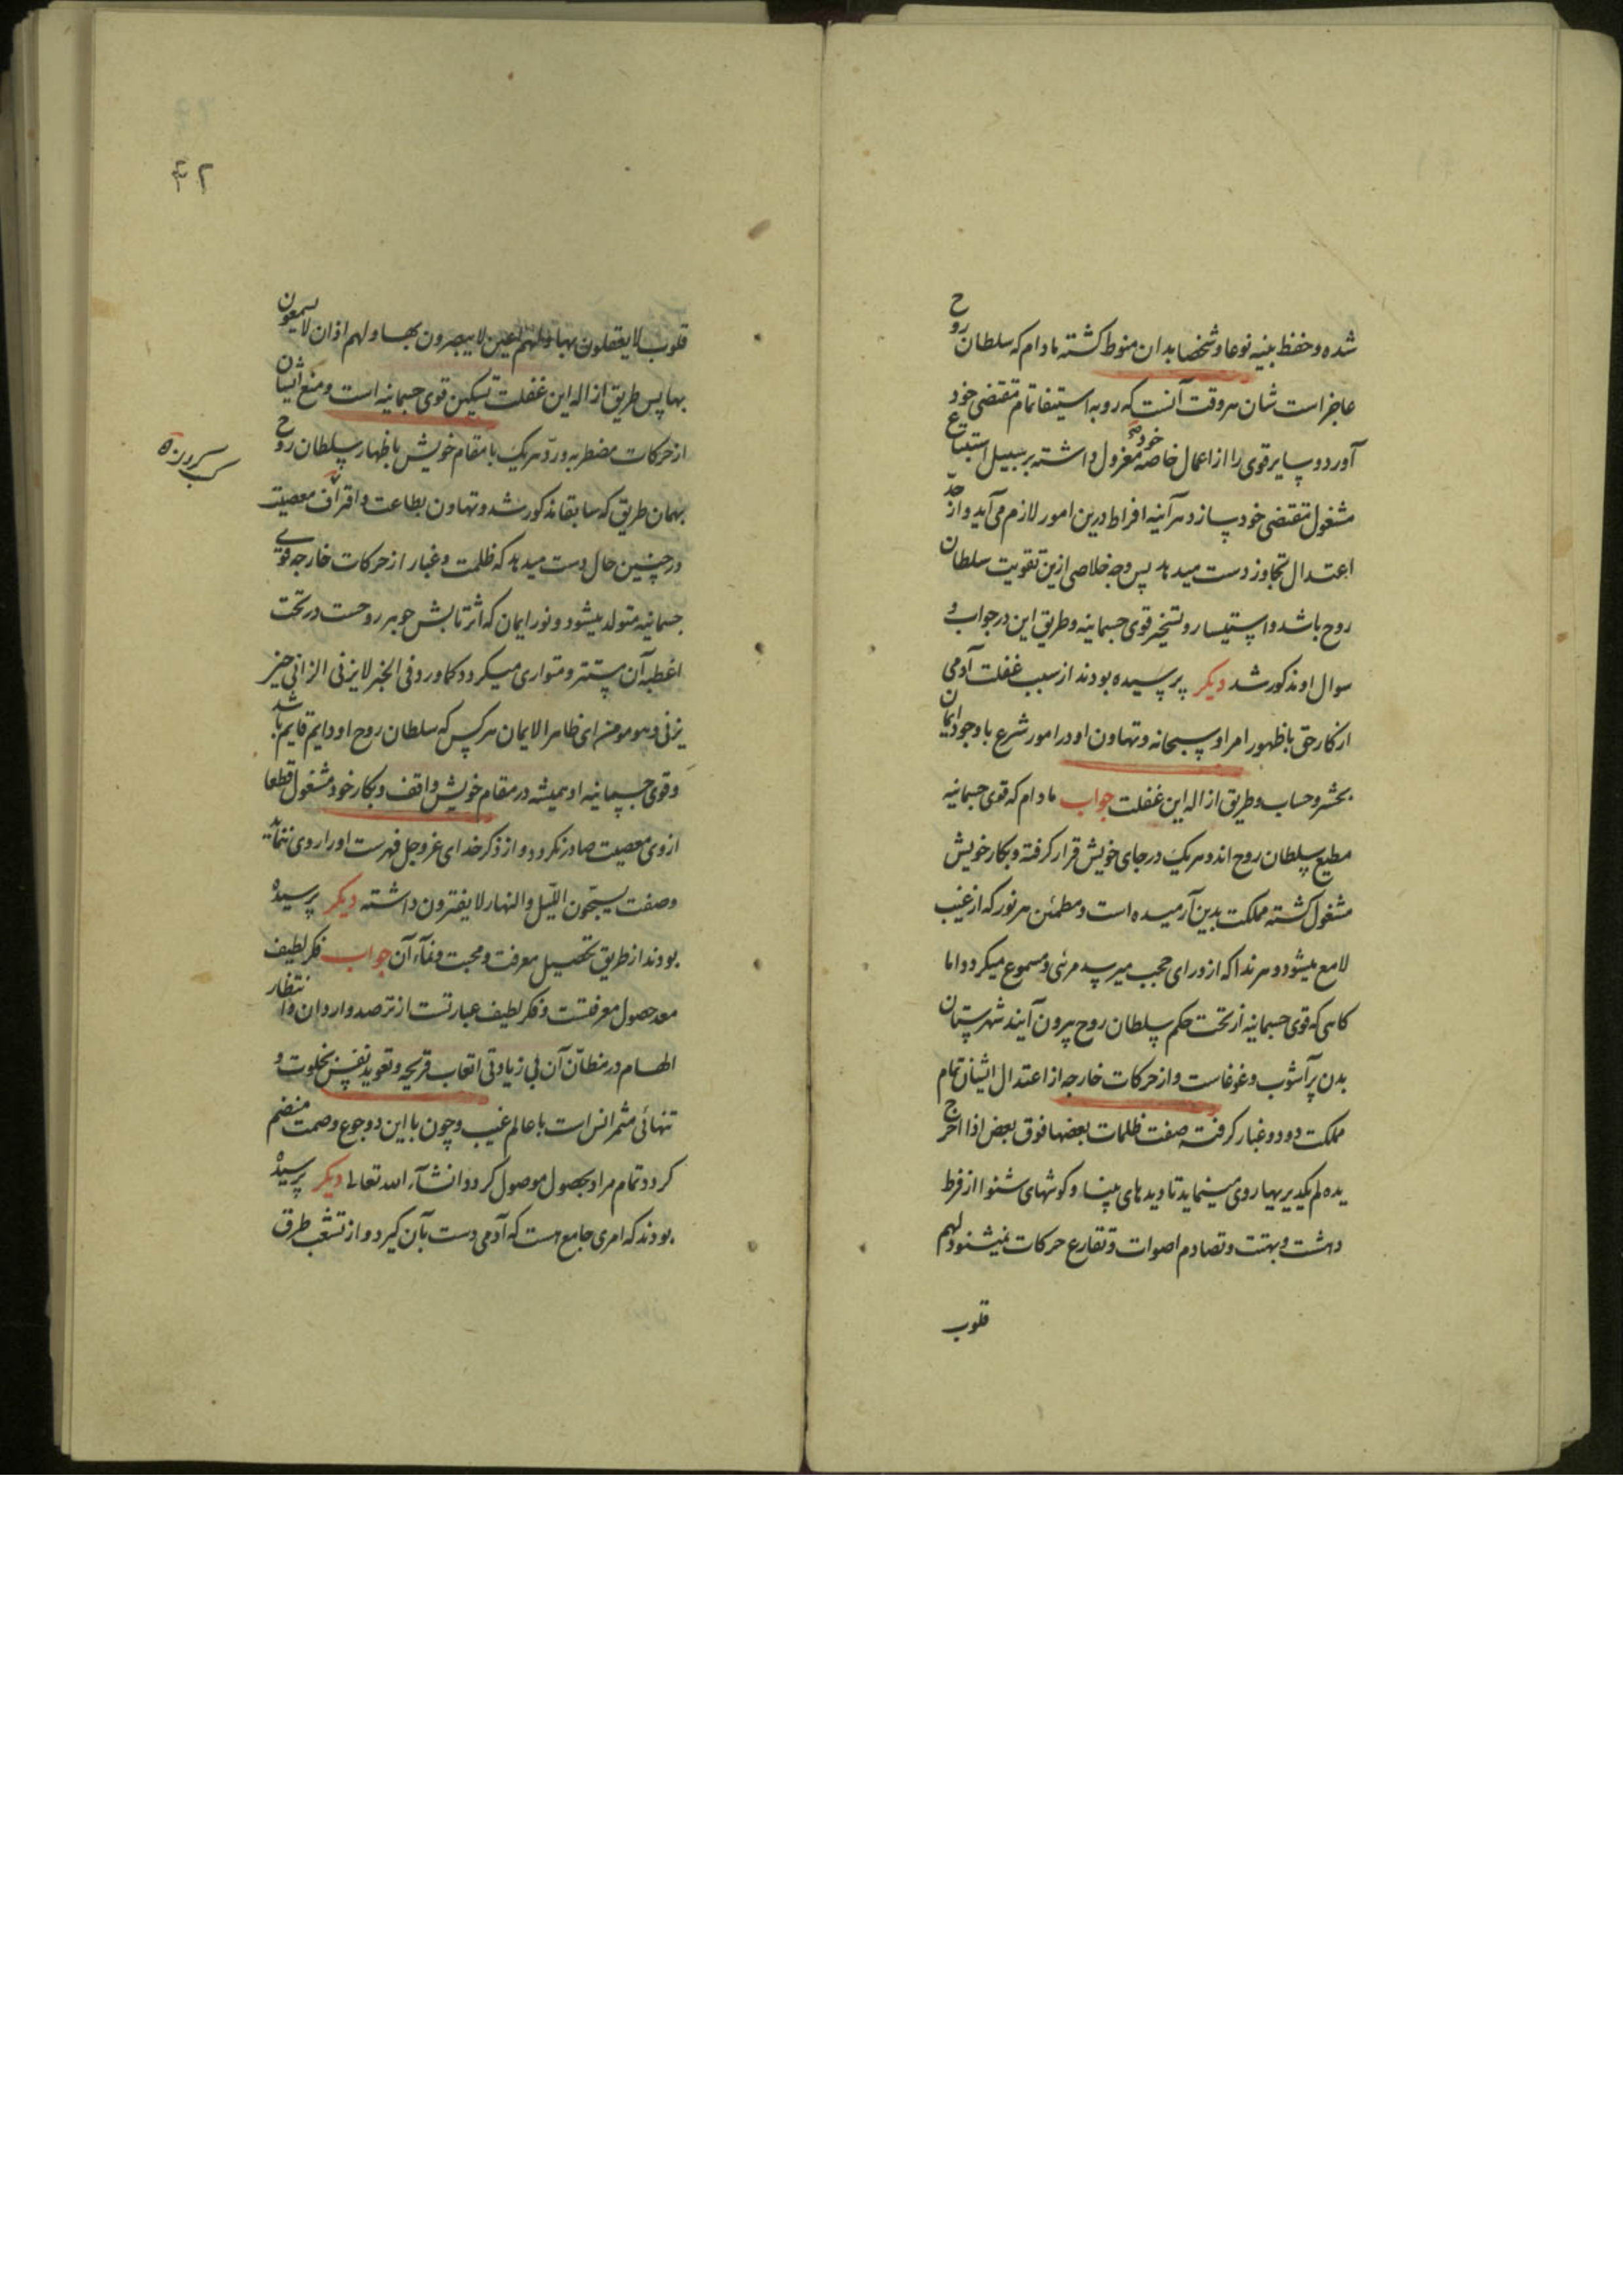 شده و حفظ بنیه نوعا و شخصا بدان منوط کشته مادام که سلطان روح
عاجز است شان هر وقت آنست که رو به استیفا تمام مقتضی خود
آورد و سایر قوی را از اعمال خاصه خود معزول داشته بر سبیل استتباع
مشغول مقتضی خود سازد هر آینه افراط درین امور لازم می آید و از حد
اعتدال تجاوز دست میدهد پس وجه خلاصی ازین تقویت سلطان
روح باشد و استیسار و تسخیر قوی جسمانیه و طریق این در جواب و
سوال او مذکور شد دیکر پرسیده بودند از سبب غفلت آدمی
از کار حق با ظهور امر او سبحانه و تهاون او در امور شرع با وجود ایمان
بحشر و حساب و طریق ازاله این غفلت جواب مادام که قوی جسمانیه
مطیع سلطان روح اند و هریک در جای خویش قرار کرفته و بکار خویش
مشغول کشته مملکت بدین آرمیده است و مطمئن هر نور که از غیب
لامع میشود و هر ندا که از ورای حجب میرسد مرئی و مسموع میکردد اما
کاهی که قوی جسمانیه از تحت حکم سلطان روح بیرون آیند شهرستان
بدن پر آشوب و غوغاست و از حرکات خارجه از اعتدال ایشان تمام
مملکت دود و غبار کرفته صفت ظلمات بعضها فوق بعض اذا اخرج
یده لم یکد یریها روی مینماید تا دیدهای بینا و کوشهای شنوا از فرط
دهشت و بهتت و تصادم اصوات و تقارع حرکات نمیشنود لهم
قلوب
۴۲
قلوب لا یعقلون بها و لهم اعین لا یبصرون بها و لهم اذان لا یسمعون
بها پس طریق ازاله این غفلت تسکین قوی جسمانیه است و منع ایشان
از حرکات مضطربه و رد هریک با مقام خویش باظهار سلطان روح
بهمان طریق که سابقا مذکور شد و تهاون بطاعت و اقتراف معصیت
در چنین حال دست میدهد که ظلمت و غبار از حرکات خارجه قوی
جسمانیه متولد میشود و نور ایمان که اثر تابش جوهر روحست در تحت
اغطیه آن مستتر و متواری میکردد کما ورد فی الخبر لا یزنی الزانی حین
یزنی و هو مومن ای ظاهر الایمان هر کس که سلطان روح او دایم قایم باشد
و قوی جسمانیه او همیشه در مقام خویش واقف و بکار خود مشغول قطعا
از وی معصیت صادر نکردد و از ذکر خدای عز و جل فهرست او را روی ننماید
و صفت یسبحون اللیل و النهار لا یفترون داشته دیکر پرسیده
بودند از طریق تحصیل معرفت و محبت و نماء آن جواب فکر لطیف
معد حصول معرفتست و فکر لطیف عبارتست از ترصد واردان و انتظار
الهام در مظان آن بی زیادتی اتعاب قریحه و تعوید نفس بخلوت و
تنهائی مثمر انس است با عالم غیب و چون با این دو جوع و صمت منضم
کردد تمام مراد بحصول موصول کردد انشآء الله تعالی دیکر پرسیده
بودند که امری جامع هست که آدمی دست بآن کیرد و از تشعب طرق